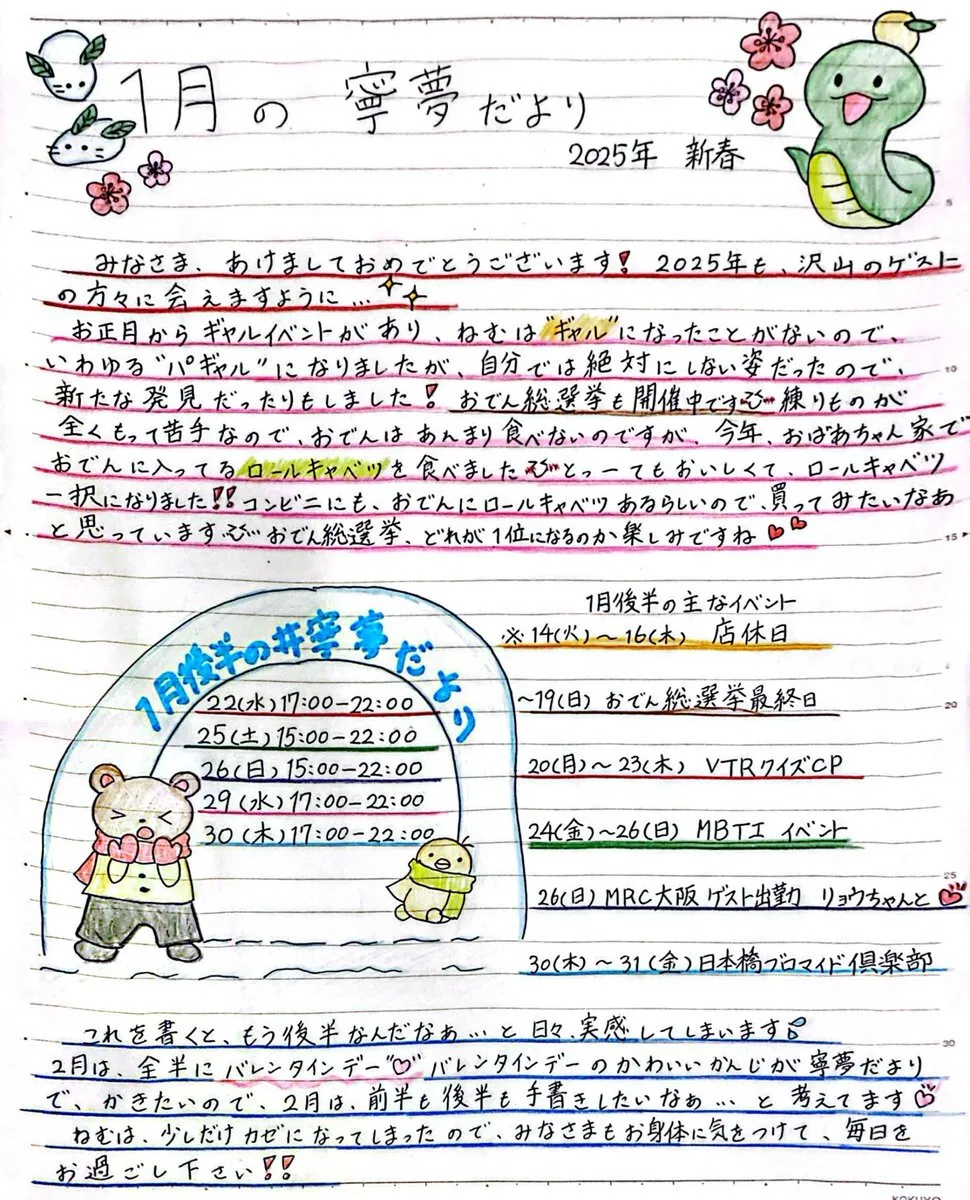 1月の 寧夢だより
2025年 新春
みなさま、あけましておめでとうございます! 2025年も、沢山のゲスト
の方々に会えますように…
お正月からギャルイベントがあり、ねむは"ギャル"になったことがないので、
いわゆる"パギャル"になりましたが、自分では絶対にしない姿だったので、
新たな発見だったりもしました! おでん総選挙も開催中です 練りものが
全くもって苦手なので、おでんはあんまり食べないのですが、今年、おばあちゃん家で
おでんに入ってるロールキャベツを食べました とっーてもおいしくて、ロールキャベツ
一択になりました!!コンビニにも、おでんにロールキャベツあるらしいので、買ってみたいなあ
と思っています おでん総選挙、どれが1位になるのか楽しみですね
1月後半の#寧夢だより
22(水)17:00-22:00
25(土)15:00-22:00
26(日)15:00-22:00
29(水)17:00-22:00
30(木)17:00-22:00
1月後半の主なイベント
※14(火)~16(木) 店休日
~19(日) おでん総選挙最終日
20(月)~23(木) VTRクイズCP
24(金)~26(日) MBTI イベント
26(日)MRC大阪 ゲスト出勤 リョウちゃんと
30(木)~31(金)日本橋ブロマイド倶楽部
これを書くと、もう後半なんだなぁ…と日々、実感してしまいます
2月は、全半にバレンタインデー バレンタインデーのかわいいかんじが寧夢だより
で、かきたいので、2月は、前半も後半も手書きしたいなぁ…と 考えてます
ねむは、少しだけカゼになってしまったので、みなさまもお身体に気をつけて、毎日を
お過ごし下さい!!
5
10
15
20
25
30
KOKUYO